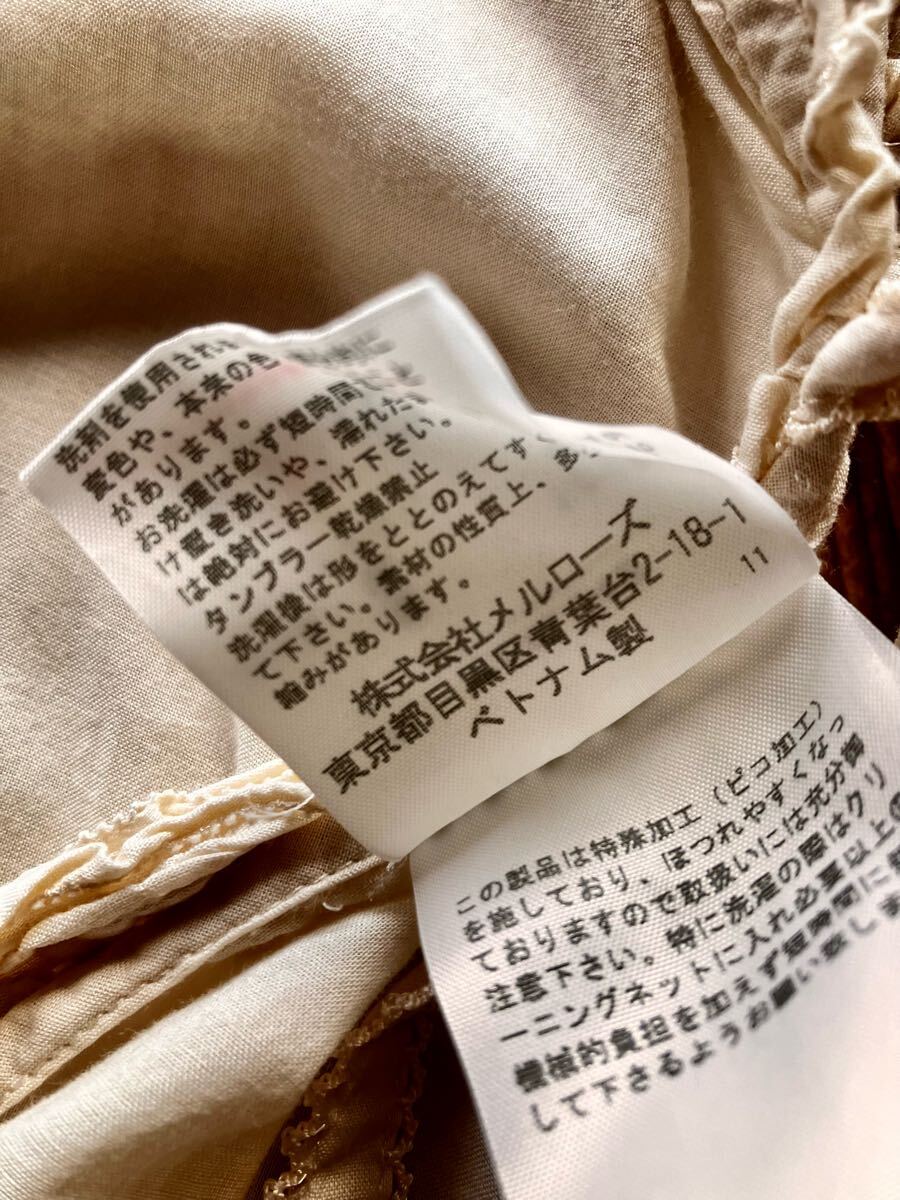 洗剤を使用され
変色や、本来の色
があります。
お洗濯は必ず短時間で
け置き洗いや、濡れたま
は絶対にお避け下さい。
タンブラー乾燥禁止
洗濯後は形をととのえてすぐ
て下さい。素材の性質上、多少の
縮みがあります。
株式会社メルローズ
東京都目黒区青葉台2-18-1
ベトナム製
11
この製品は特殊加工(ピコ加工)
を施しており、ほつれやすくなっ
ておりますので取扱いには充分御
注意下さい。特に洗濯の際はクリ
ーニングネットに入れ必要以上の
機械的負担を加えず短時間に
して下さるようお願い致しま